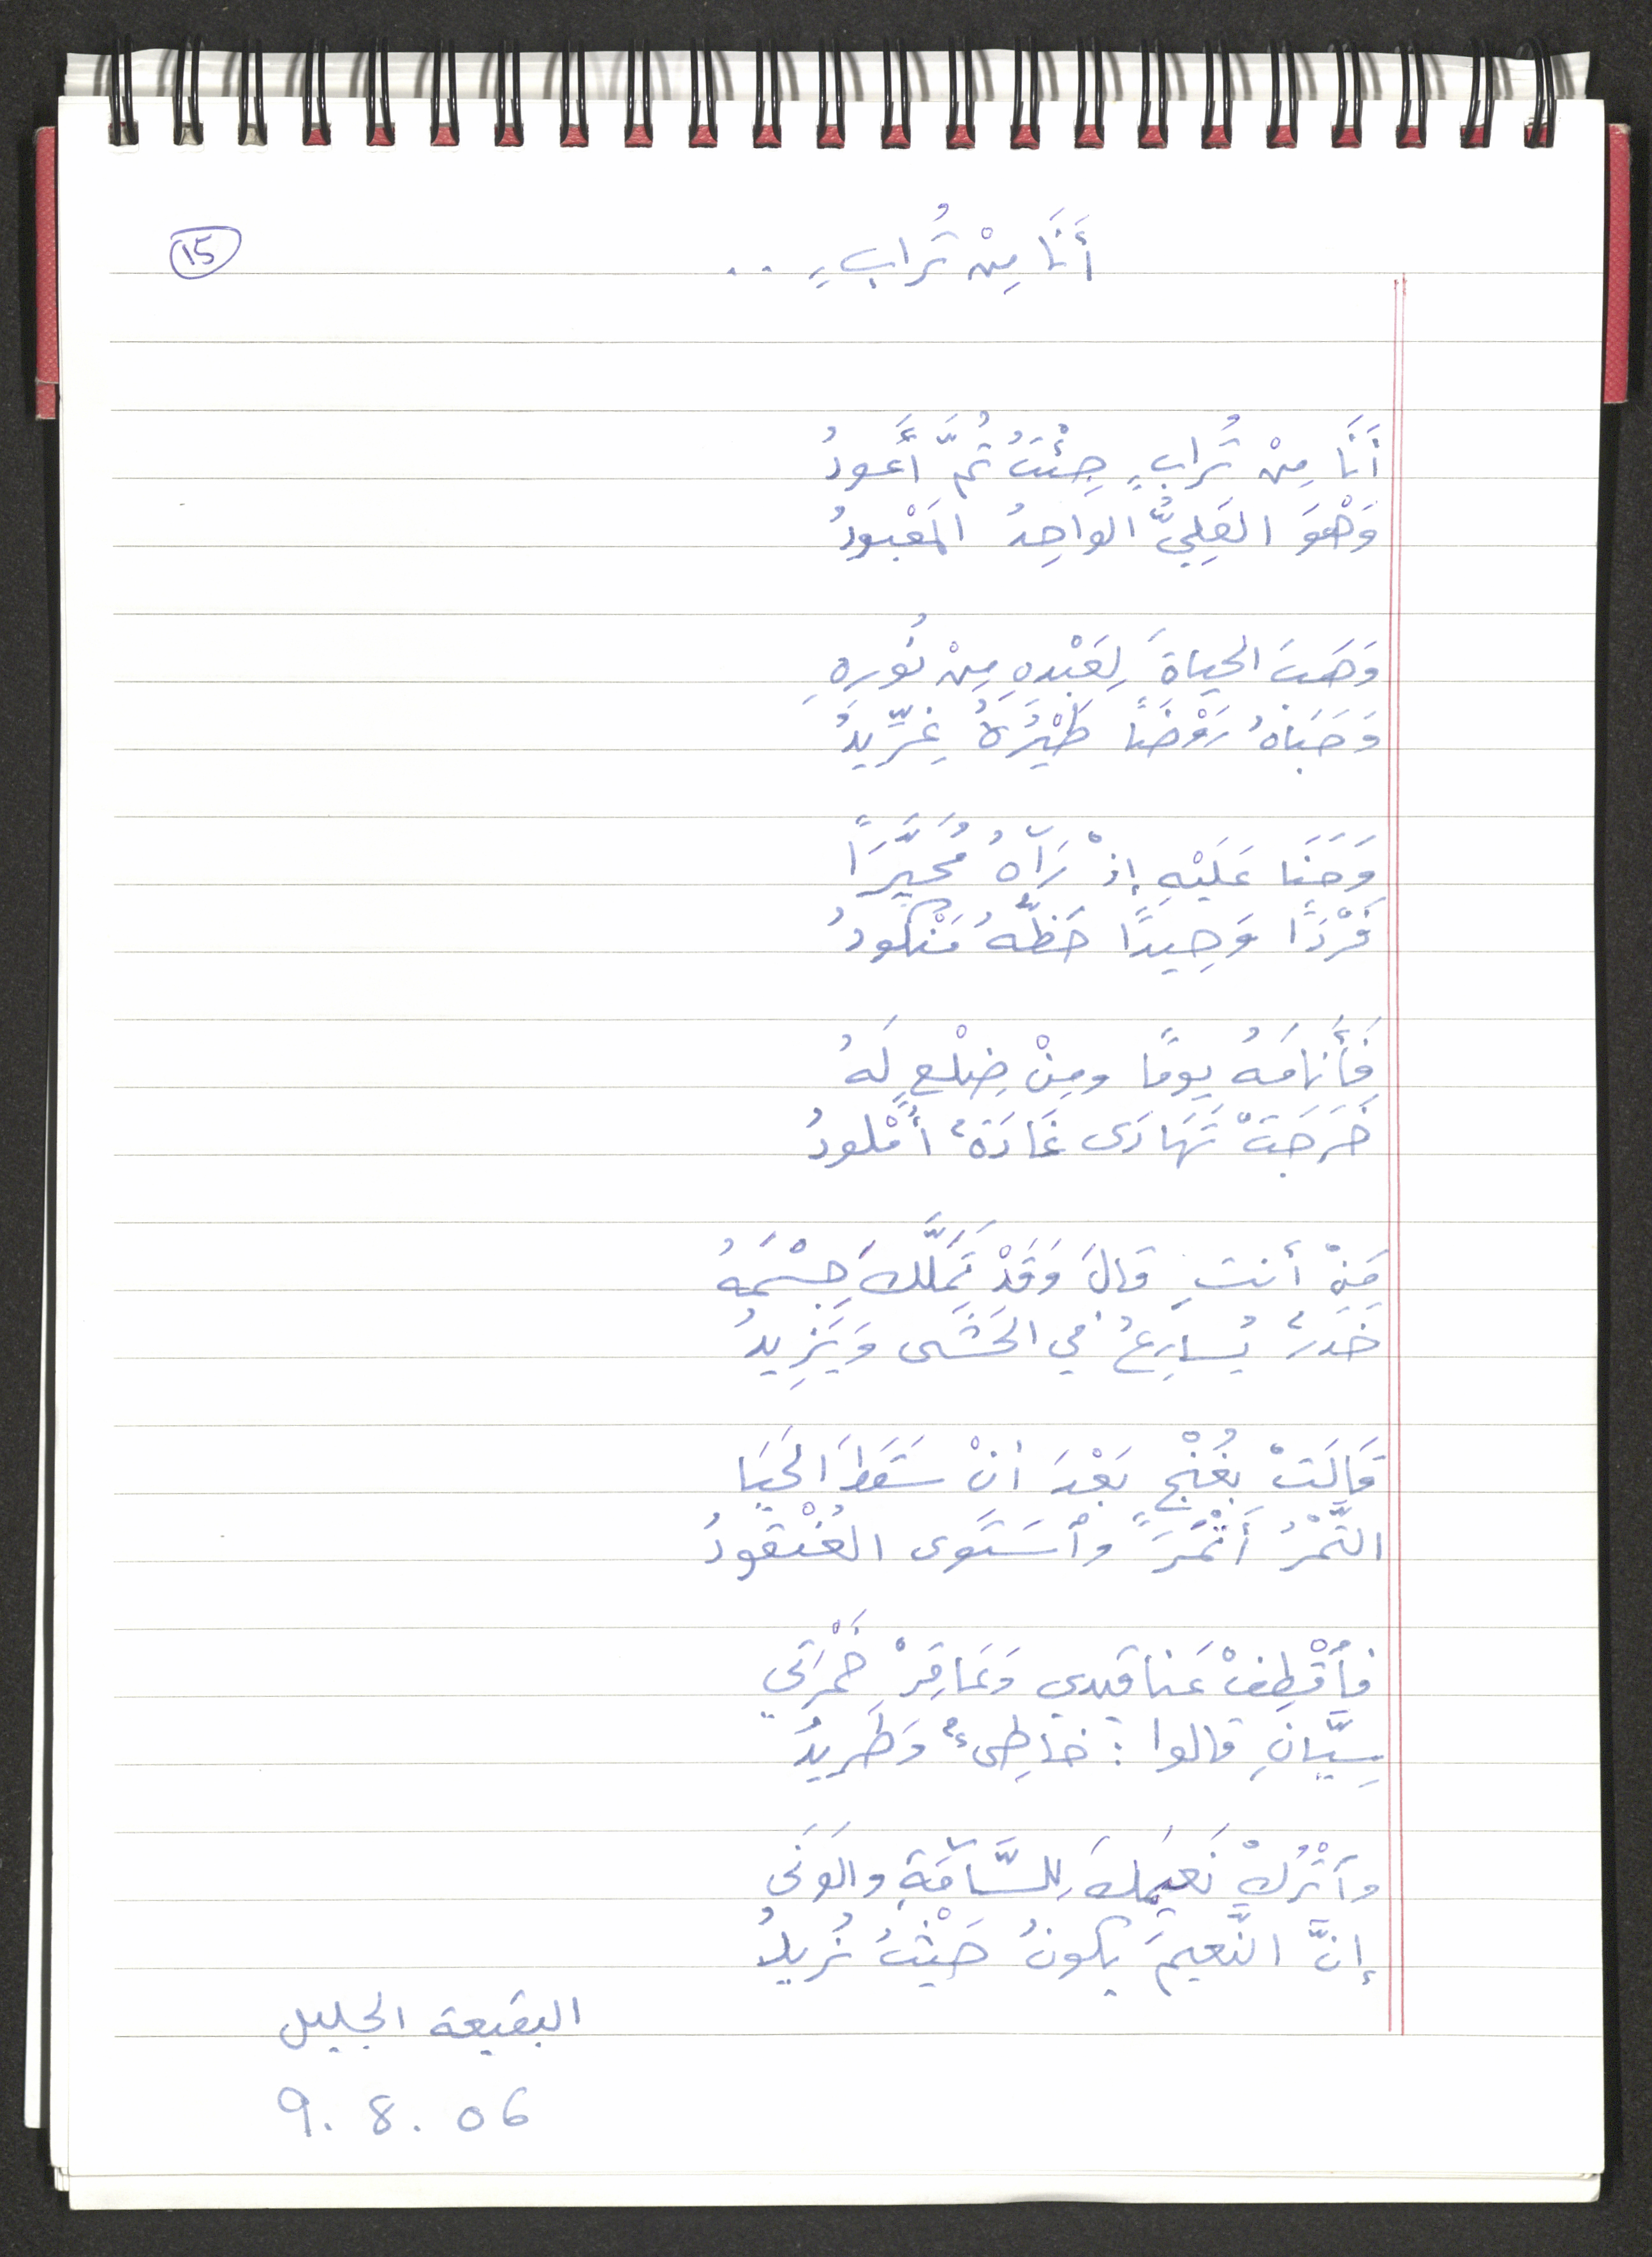 15
أَنَا مِنْ تُرابٍ ...
أَنَا مِنْ تُرابٍ جِئْتُ ثُمَّ أَعودُ
وَهْوَ العَلِيُّ الواحِدُ المَعْبودُ
وَهَبَ الحياةَ لِعَبْدِهِ مِنْ نُورِهِ
وَحَبَاهُ رَوْضًا طَيْرُهُ غِرِّيدُ
وَحَنَا عَلَيْهِ إذْ رَآهُ مُحَيَّرًا
فَرْدًا وَحِيدًا حَظُّهُ مَنْكُودُ
فَأَنامَهُ يومًا ومِنْ ضِلْعٍ لَهُ
خَرَجَتْ تَهَادَى غَادَةٌ أُمْلودُ
مَنْ أنتِ قالَ وَقَدْ تَمَلَّكَ جِسْمَهُ
خَدَرٌ يُسارِعُ في الحَشَى وَيَزِيدُ
قَالَتْ بِغُنْجٍ بَعْدَ أنْ سَقَطَ الحَيَا
التَّمْرُ أَثْمَرَ وٱسْتَوى العُنْقودُ
فٱقْطِفْ عَناقيدي وَعَاقِرْ خَمْرَتي
سِيَّانِ قالوا: خَاطِىءٌ وَطَريدُ
وٱتْرُكْ نَعيمَكَ لِلسَّآمَةِ والوَنَى
إنَّ النَّعيمَ يكونُ حَيْثُ نُريدُ
البقيعة الجليل
9. 8. 06